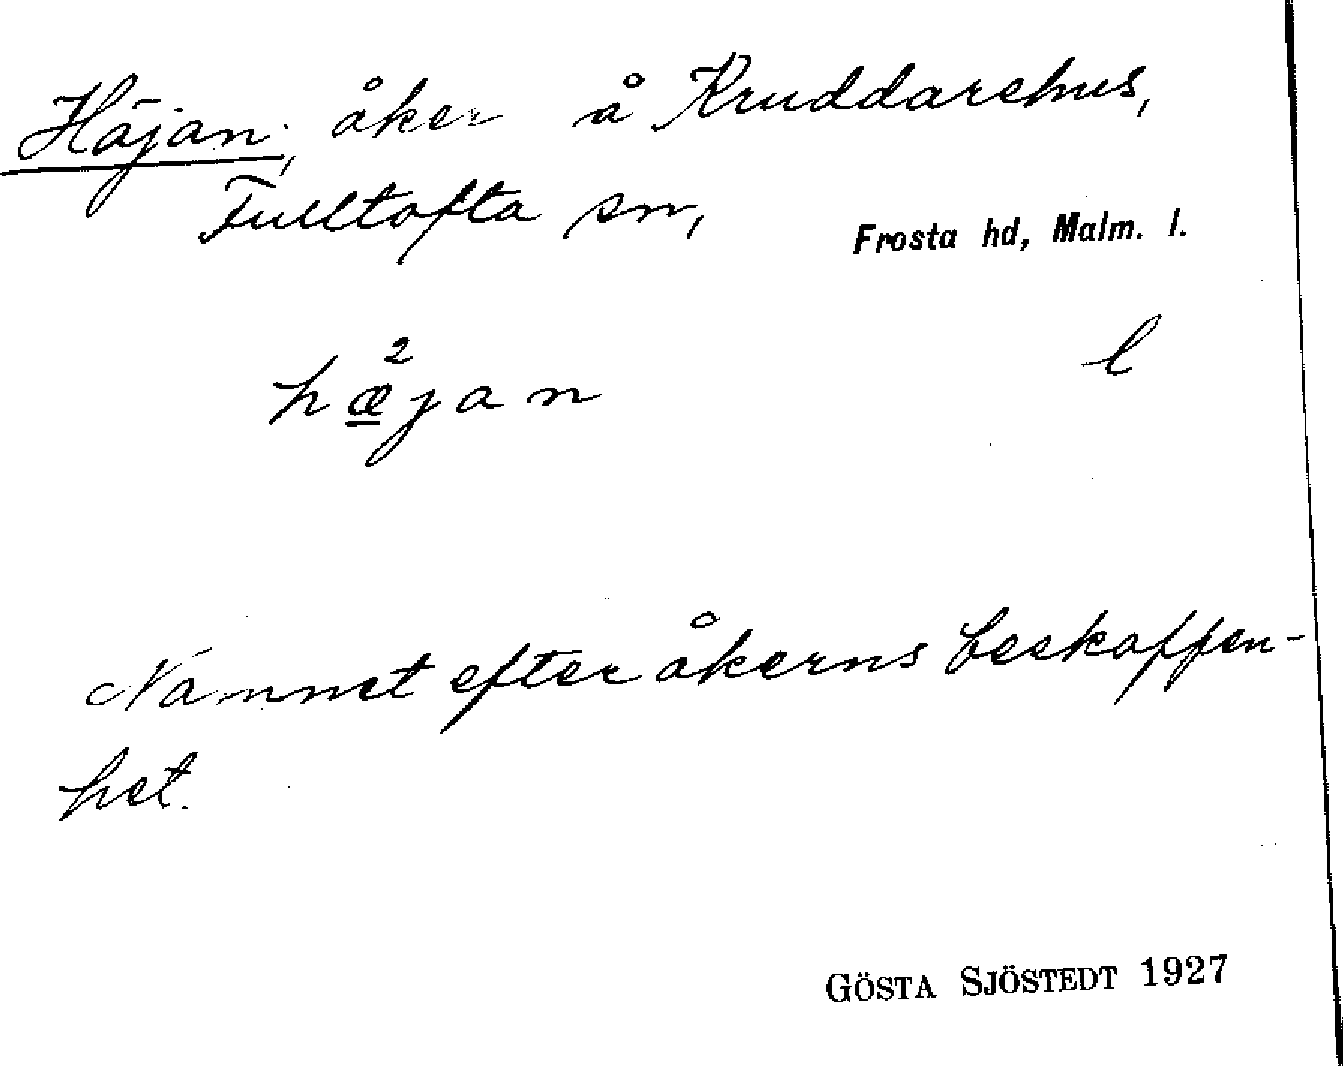 Häjan, åker å Kruddarehus,
Fulltofta sn, Frosta hd, Malm. l.
hæ²jan l
Namnet efter åkerns beskaffen-
het.
GÖSTA SJÖSTEDT 1927